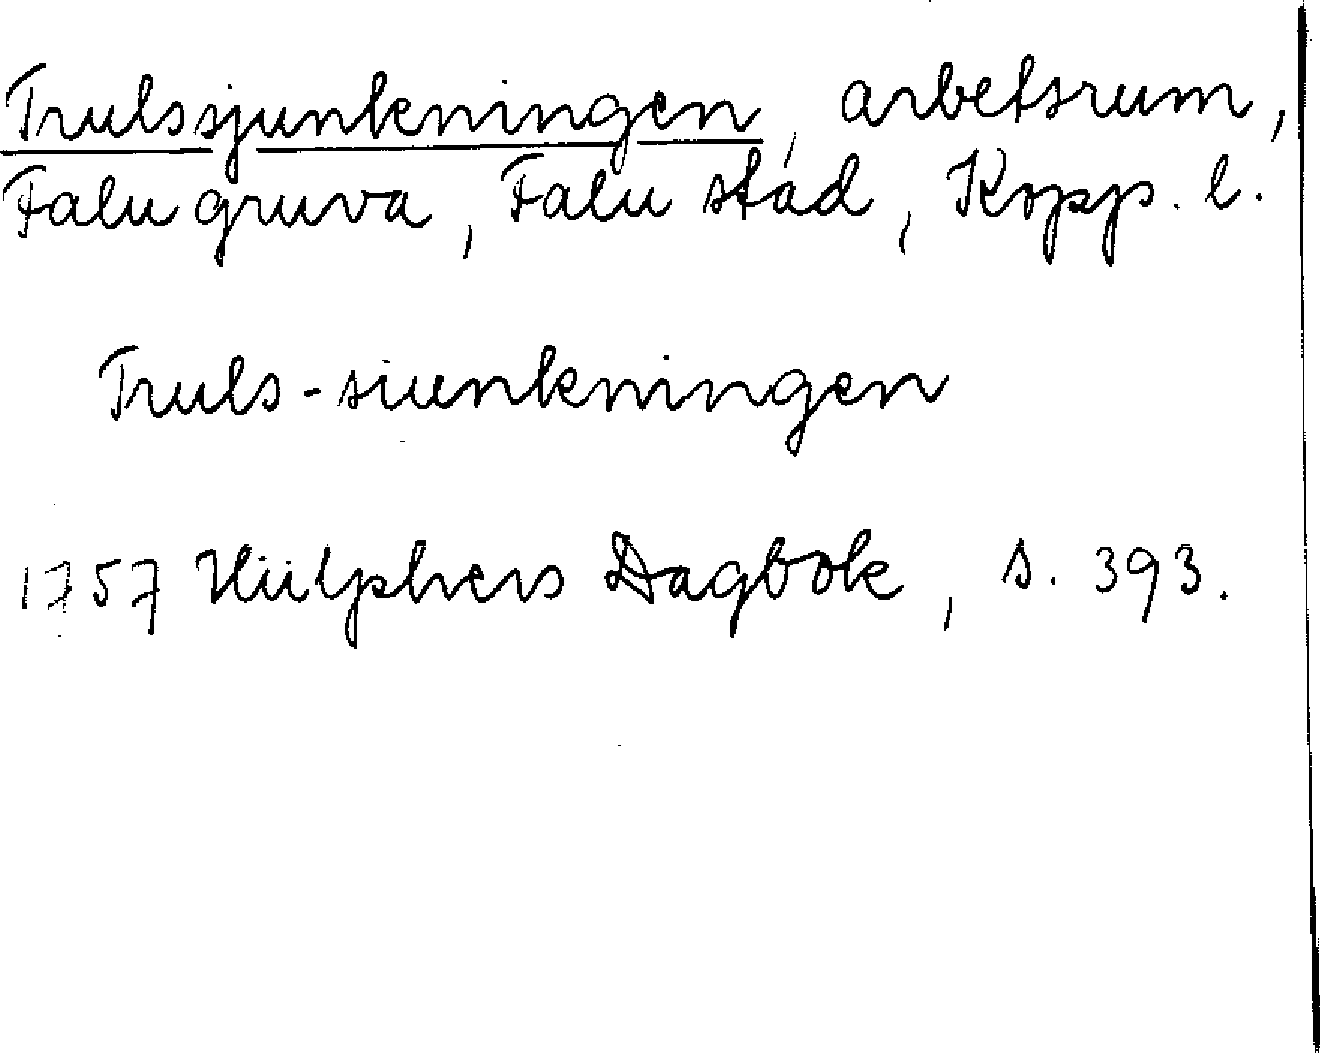 Trulssjunkningen, arbetsrum,
Falu gruva, Falu stad, Kopp. l.
Truls-siunkningen
1757 Hülphers Dagbok, s. 393.